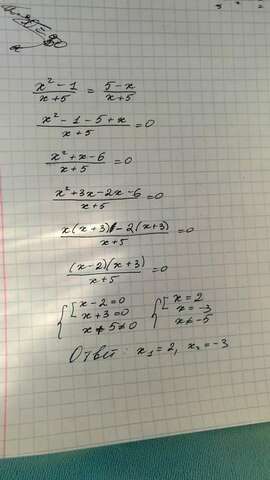 x² - 1 / x + 5 = 5 - x / x + 5
x² - 1 - 5 + x / x + 5 = 0
x² + x - 6 / x + 5 = 0
x² + 3x - 2x - 6 / x + 5 = 0
x(x + 3) - 2(x + 3) / x + 5 = 0
(x - 2)(x + 3) / x + 5 = 0
{ [ x - 2 = 0 { [ x = 2
x + 3 = 0 x = -3
x + 5 ≠ 0 x ≠ -5
Ответ: x₁ = 2, x₂ = -3